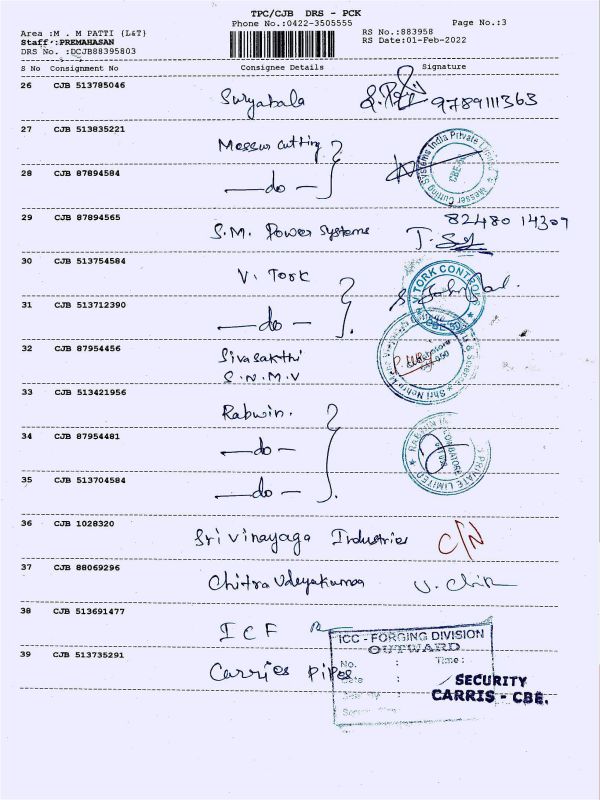 TPC/CJB DRS - PCK
Phone No.:0422-3505555
Page No.:3
Area :M . M PATTI {L&T}
Staff :PREMAHASAN
DRS No. :DCJBB88395803
RS No.:883958
RS Date:01-Feb-2022
S No Consignment No Consignee Details Signature
26 CJB 513785046 Suryabala 9789111363
27 CJB 513835221 Messer Cutting
28 CJB 87894584 —do—
Messer Cutting Systems India Private Limited
29 CJB 87894565 S.M. Power Systems 82480 14309
30 CJB 513754584 V. Tork
31 CJB 513712390 —do—
V TORK CONTROLS
32 CJB 87954456 Sivasakthi
S.N.M.V
33 CJB 513421956 Rabwin.
34 CJB 87954481 —do—
35 CJB 513704584 —do—
PRIVATE LIMITED
36 CJB 1028320 Sri Vinayaga Industries C/N
37 CJB 88069296 Chitra Udeyakumar
38 CJB 513691477 ICF
39 CJB 513735291 Carries Pipes
ICC - FORGING DIVISION
OUTWARD
No. : Time :
Date :
SECURITY
CARRIS - CBE.